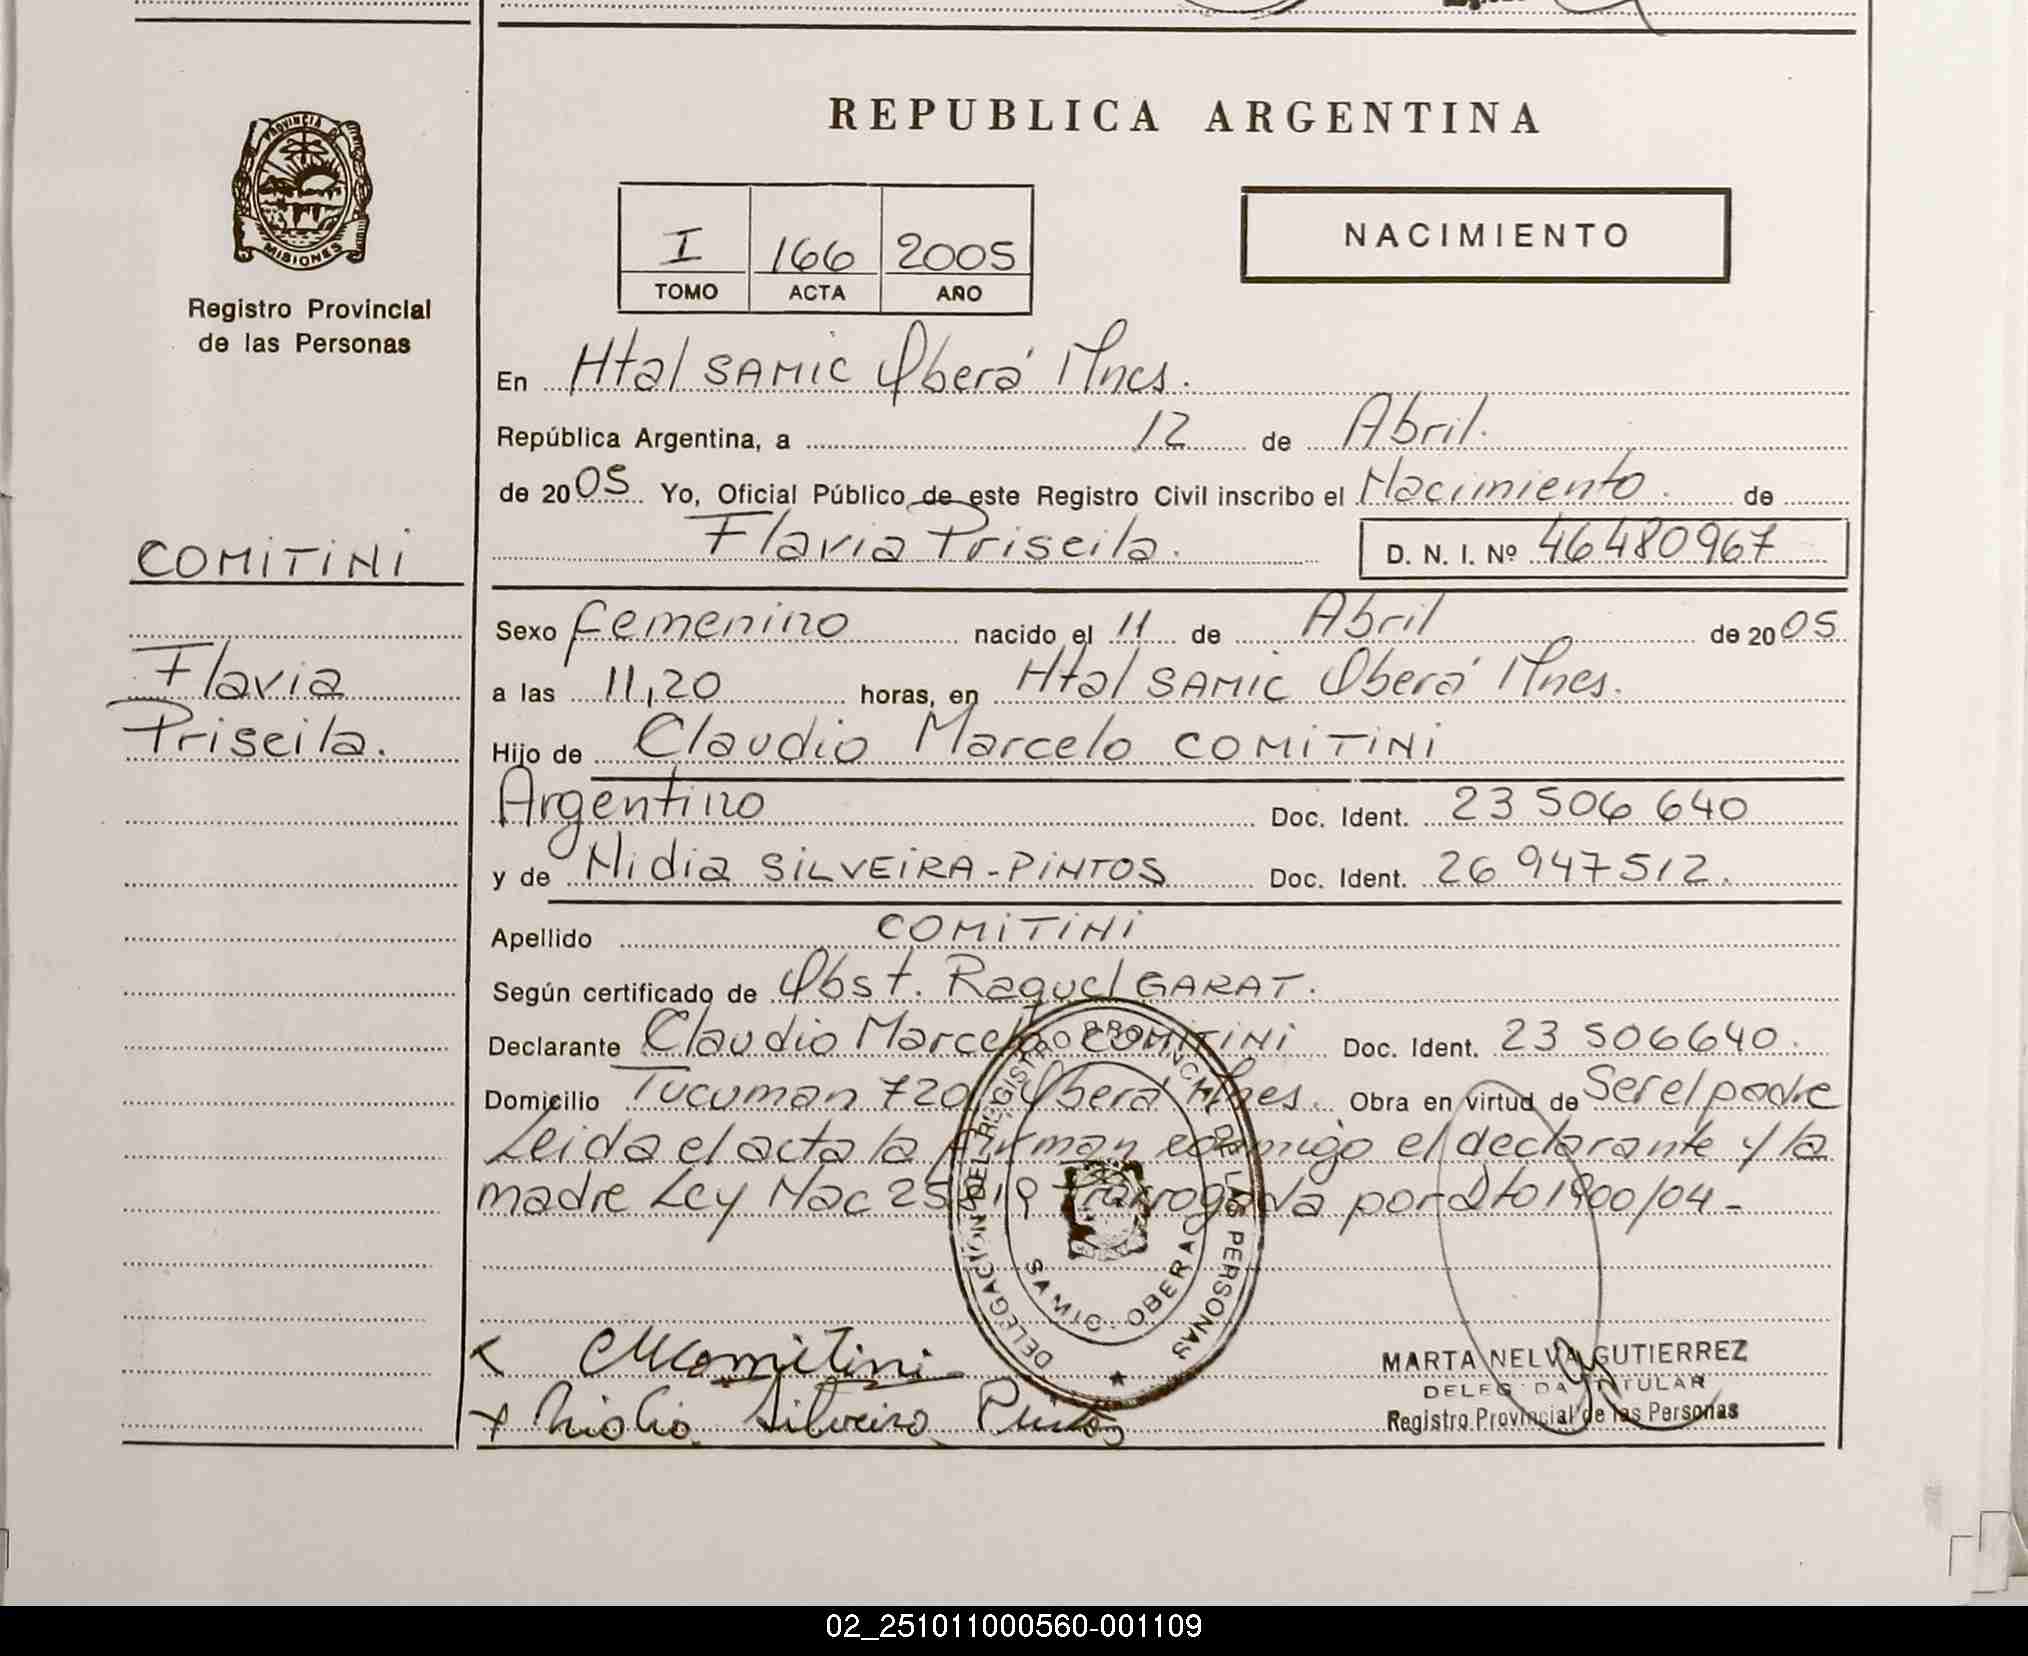 REPUBLICA ARGENTINA
PROVINCIA DE
MISIONES
Registro Provincial
de las Personas
I 166 2005
TOMO ACTA AÑO
NACIMIENTO
En Htal SAMIC Oberá Mnes.
República Argentina, a 12 de Abril.
de 2005 Yo, Oficial Público de este Registro Civil inscribo el Nacimiento. de
Flavia Priscila.
D. N. I. Nº 46480967
COMITINI
Flavia
Priscila.
Sexo femenino nacido el 11 de Abril de 2005
a las 11,20 horas, en Htal SAMIC Oberá Mnes.
Hijo de Claudio Marcelo COMITINI
Argentino Doc. Ident. 23 506 640
y de Nidia SILVEIRA-PINTOS Doc. Ident. 26 947512.
Apellido COMITINI
Según certificado de Obst. Raquel GARAT.
Declarante Claudio Marcelo COMITINI Doc. Ident. 23 506640.
Domicilio Tucuman 720 Oberá Mnes. Obra en virtud de Ser el padre
Leida el acta la firman conmigo el declarante y la
madre Ley Nac 25819 Prorrogada por Dto 1900/04-
DELEGACIÓN DEL REGISTRO PROVINCIAL DE LAS PERSONAS
SAMIC - OBERA
CMComitini
x Nidia Silveira Pintos
MARTA NELVA GUTIERREZ
DELEGADA TITULAR
Registro Provincial de las Personas
02_251011000560-001109